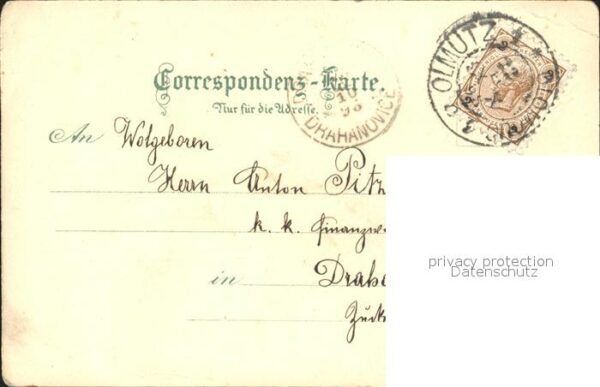 OLMÜTZ
Correspondenz-Karte.
Nur für die Adresse.
10
98
DRAHANOVICE
An Wolgeboren
Herrn Anton Pitz
k. k. Finanzw
in Draha
Zuck
privacy protection
Datenschutz